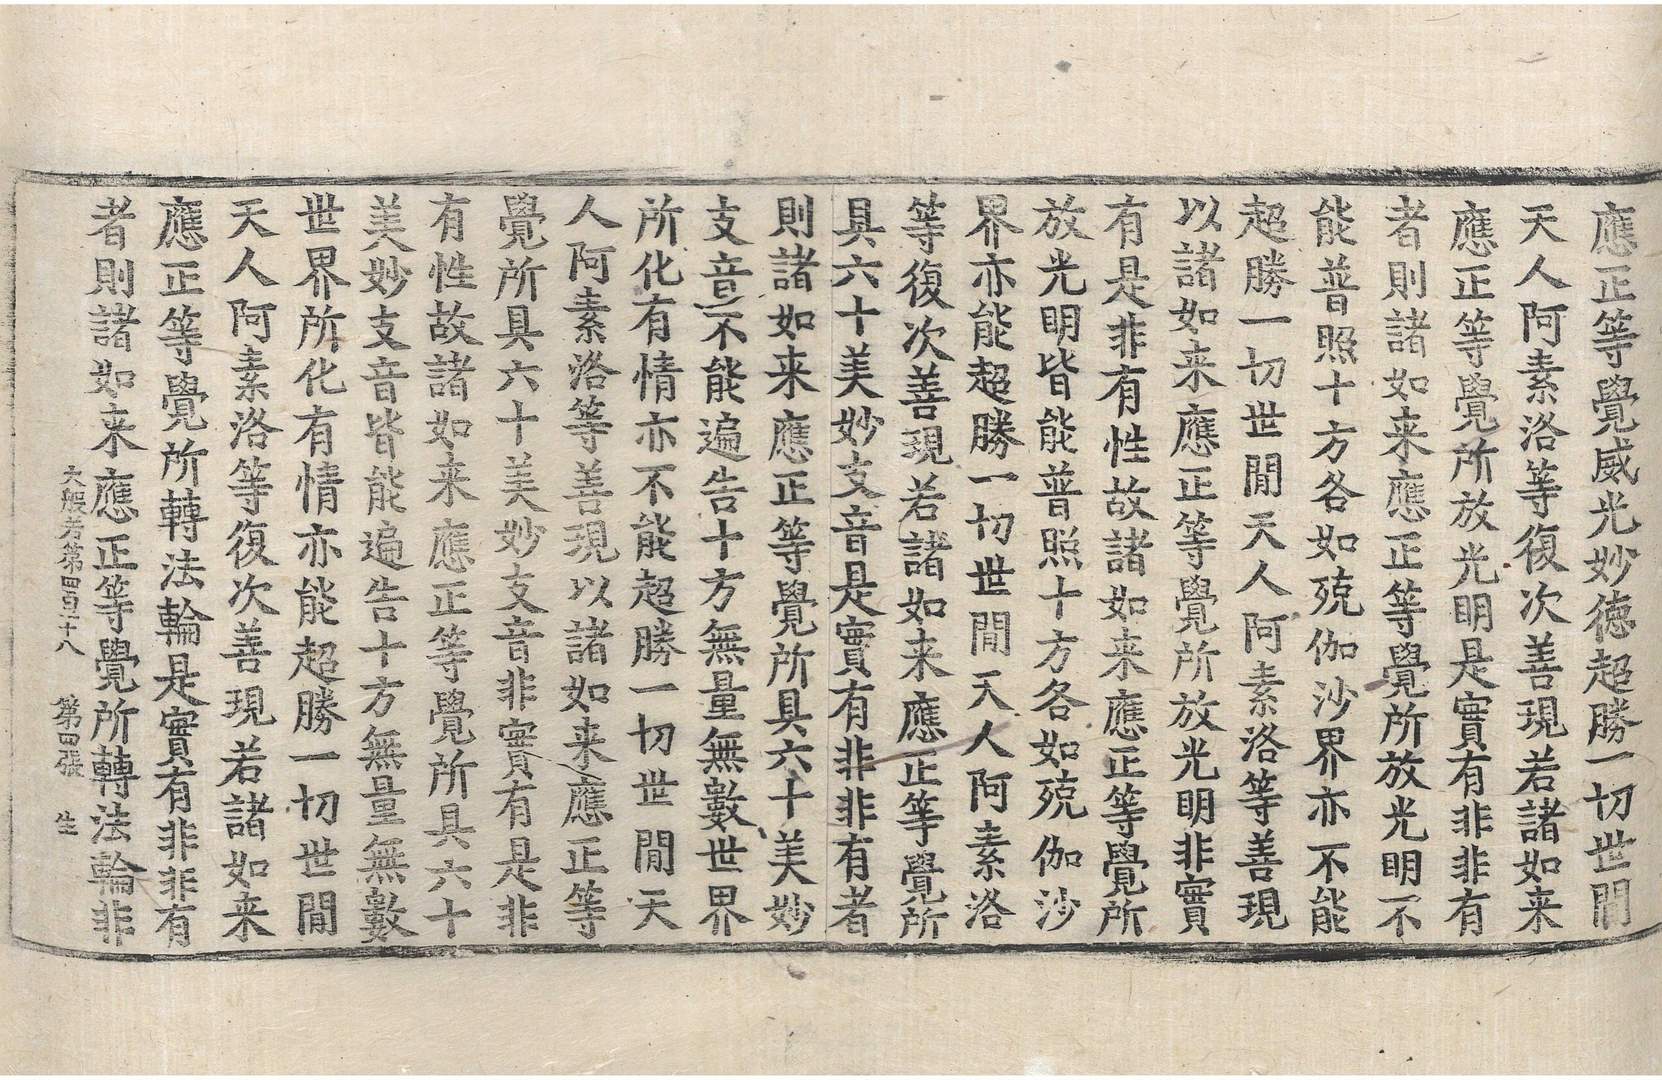 應正等覺威光妙德超勝一切世間
天人阿素洛等復次善現若諸如来
應正等覺所放光明是實有非非有
者則諸如来應正等覺所放光明不
能普照十方各如殑伽沙界亦不能
超勝一切世間天人阿素洛等善現
以諸如来應正等覺所放光明非實
有是非有性故諸如来應正等覺所
放光明皆能普照十方各如殑伽沙
界亦能超勝一切世間天人阿素洛
等復次善現若諸如来應正等覺所
具六十美妙支音是實有非非有者
則諸如来應正等覺所具六十美妙
支音不能遍告十方無量無數世界
所化有情亦不能超勝一切世間天
人阿素洛等善現以諸如来應正等
覺所具六十美妙支音非實有是非
有性故諸如来應正等覺所具六十
美妙支音皆能遍告十方無量無數
世界所化有情亦能超勝一切世間
天人阿素洛等復次善現若諸如来
應正等覺所轉法輪是實有非非有
者則諸如来應正等覺所轉法輪非
大般若第四百十八 第四張 生